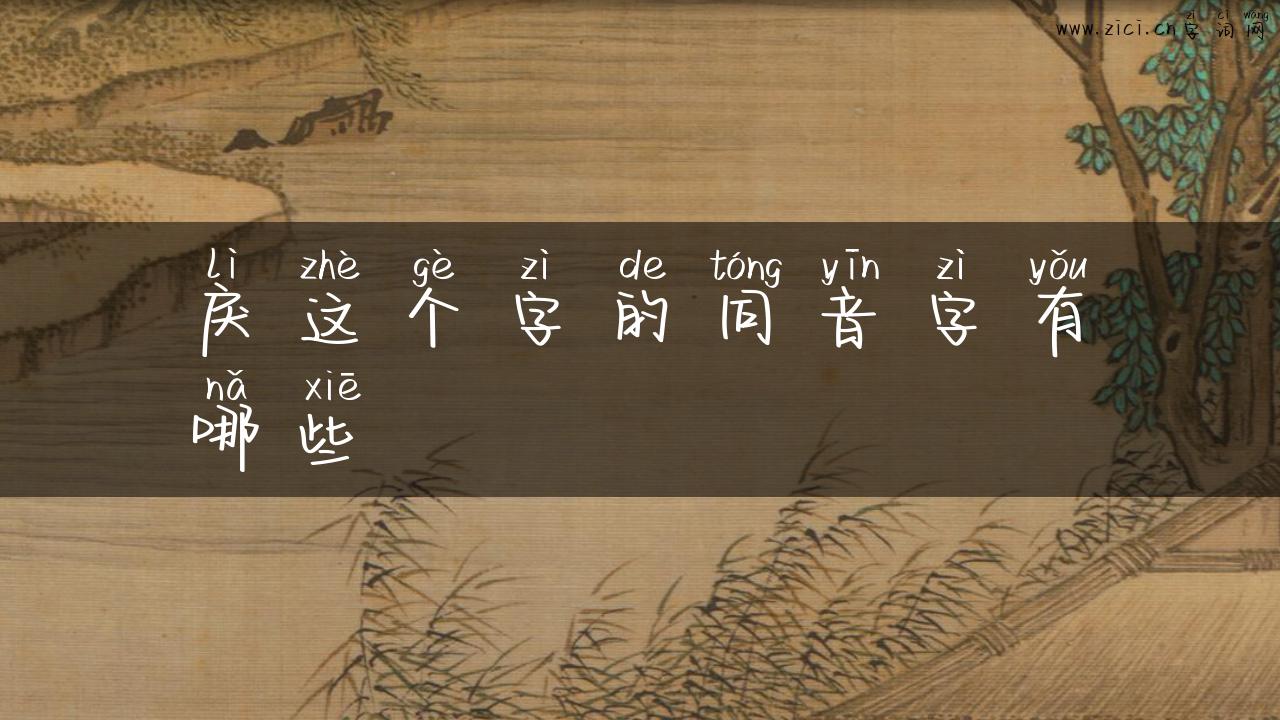 zì cí wǎng
www.zici.cn字词网
lì zhè gè zì de tóng yīn zì yǒu
戾这个字的同音字有
nǎ xiē
哪些